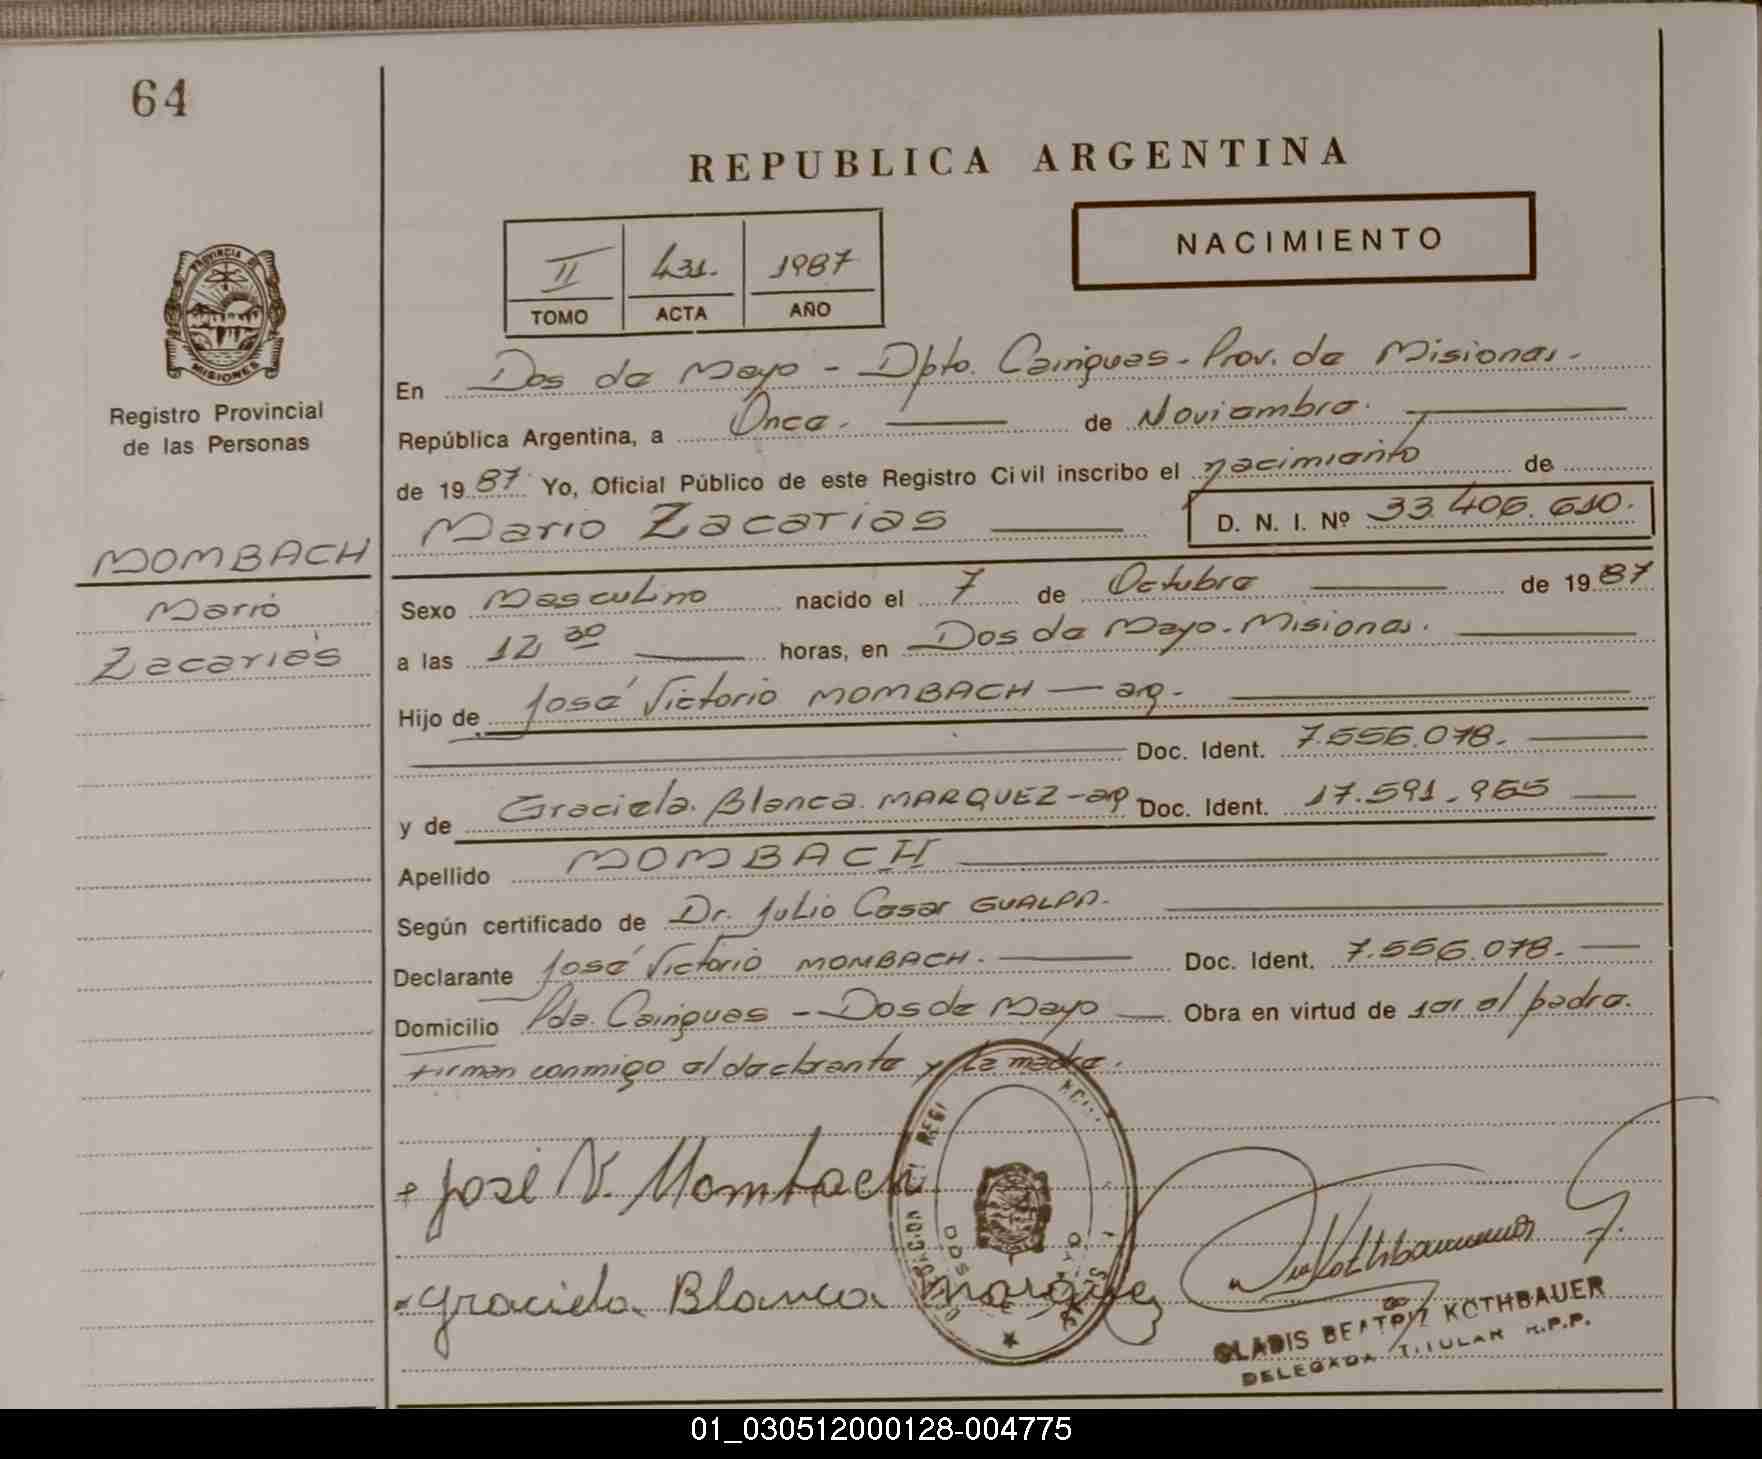 64
REPUBLICA ARGENTINA
NACIMIENTO
II 431. 1987
TOMO ACTA AÑO
PROVINCIA DE
MISIONES
Registro Provincial
de las Personas
En Dos de Mayo - Dpto. Cainguas - Prov. de Misiones.
República Argentina, a Once. de Noviembre.
de 1987. Yo, Oficial Público de este Registro Civil inscribo el nacimiento de
Mario Zacarias D. N. I. Nº 33.406.610.
MOMBACH
Mario
Zacarias
Sexo Masculino nacido el 7 de Octubre de 1987
a las 12,30 horas, en Dos de Mayo - Misiones.
Hijo de José Victorio MOMBACH — arg.
Doc. Ident. 7.556.078.
y de Graciela Blanca MARQUEZ - arg Doc. Ident. 17.591.965
Apellido MOMBACH
Según certificado de Dr. Julio Cesar GUALPA.
Declarante José Victorio MOMBACH. Doc. Ident. 7.556.078.
Domicilio Pda. Cainguas - Dos de Mayo Obra en virtud de ser el padre.
Firman conmigo el declarante y la madre.
José V. Mombach
Graciela Blanca Marquez
GLADIS BEATRIZ KOTHBAUER
DELEGADA TITULAR R.P.P.
01_030512000128-004775